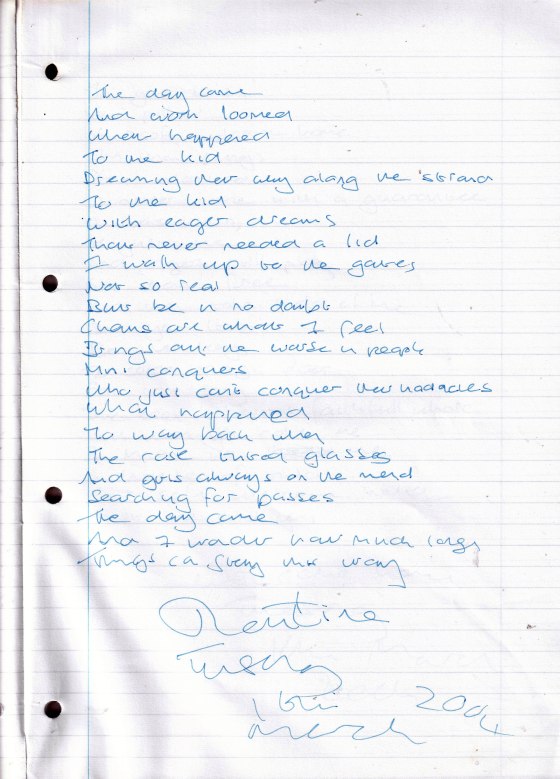 The day came
And work loomed
What happened
To the kid
Dreaming their way along the strand
To the kid
With eager dreams
That never needed a lid
I walk up to the gates
Not so real
But be in no doubt
Chains are what I feel
Brings out the worse in people
Mini conquers
Who just can't conquer their
What happened
To way back when
The rose tinted glasses
And guts always on the mend
Searching for passes
The day came
And I wonder how much longer
Things can stay this way
Routine
Tuesday
16th March 2004